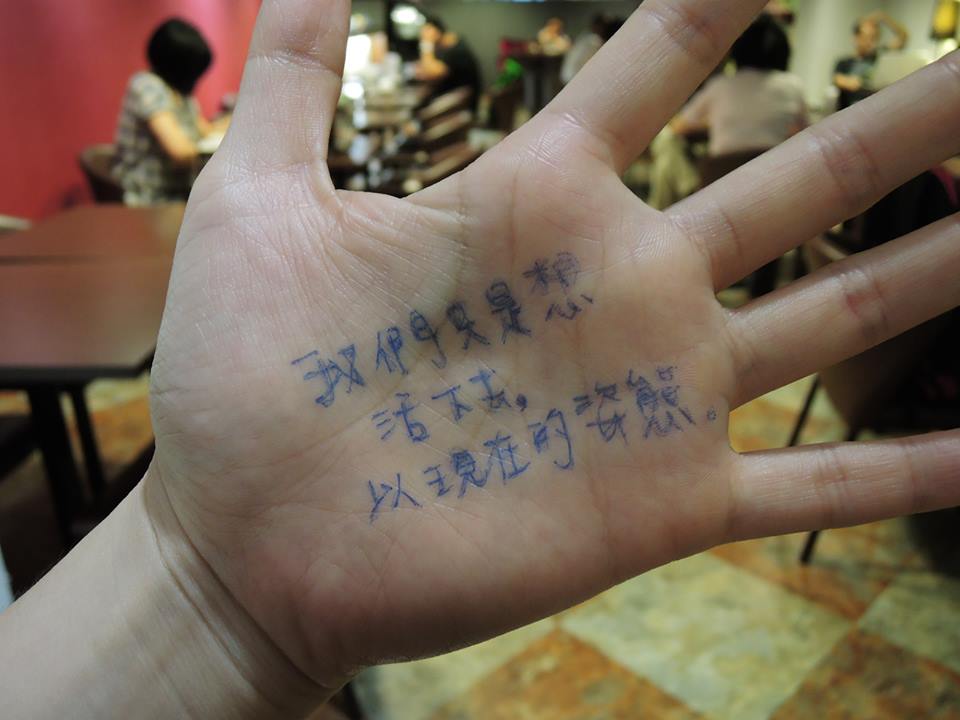 我們只是想
活下去，
以現在的姿態。